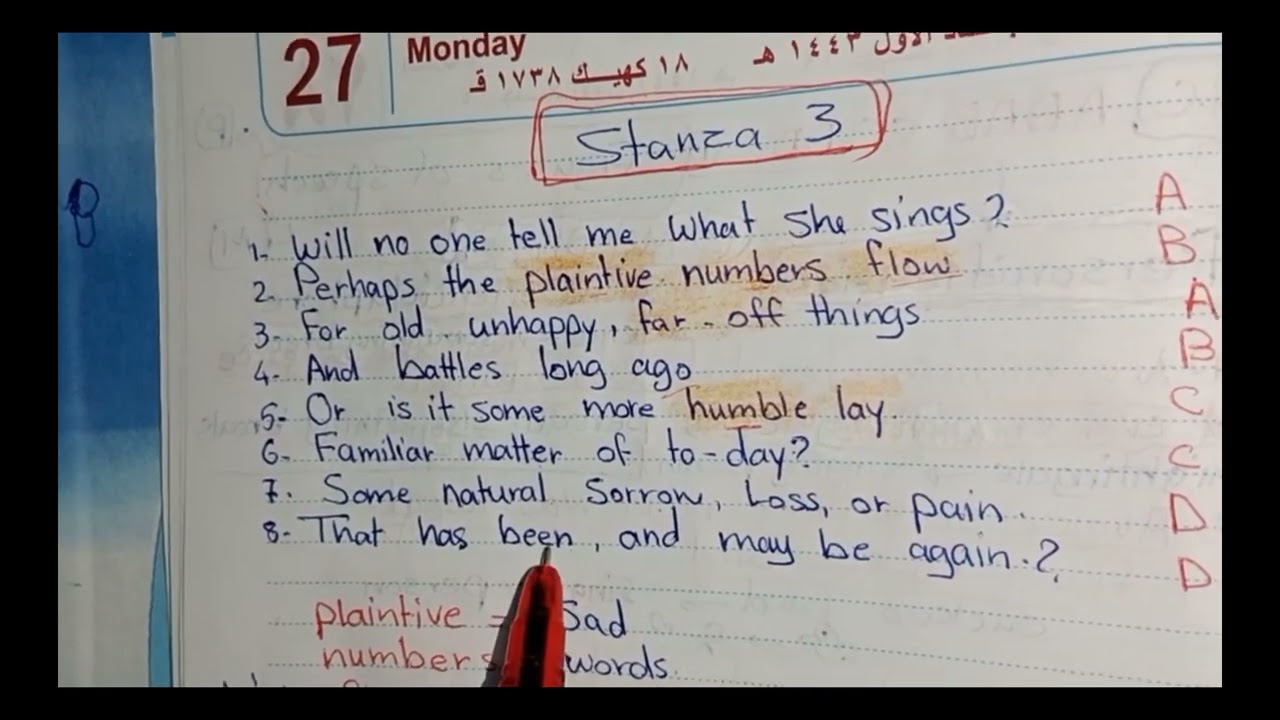 27
Monday
١٨ كهيك ١٧٣٨ ق
الأول ١٤٤٣ هـ
Stanza 3
1- Will no one tell me what she sings? A
2- Perhaps the plaintive numbers flow B
3- For old, unhappy, far-off things A
4- And battles long ago B
5- Or is it some more humble lay. C
6- Familiar matter of to-day? C
7- Some natural Sorrow, Loss, or pain. D
8- That has been, and may be again.? D
plaintive = Sad
numbers words.